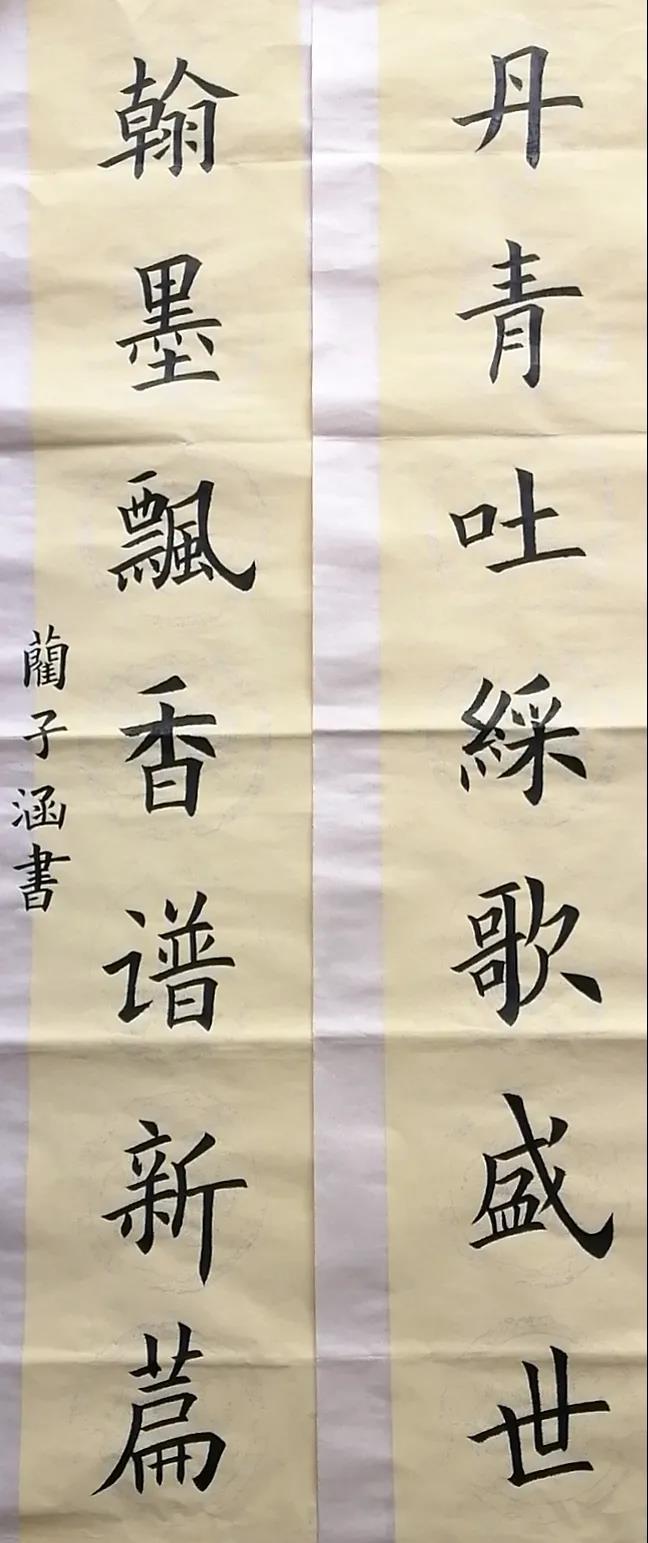 丹青吐綵歌盛世
翰墨飄香谱新萹
藺子涵書